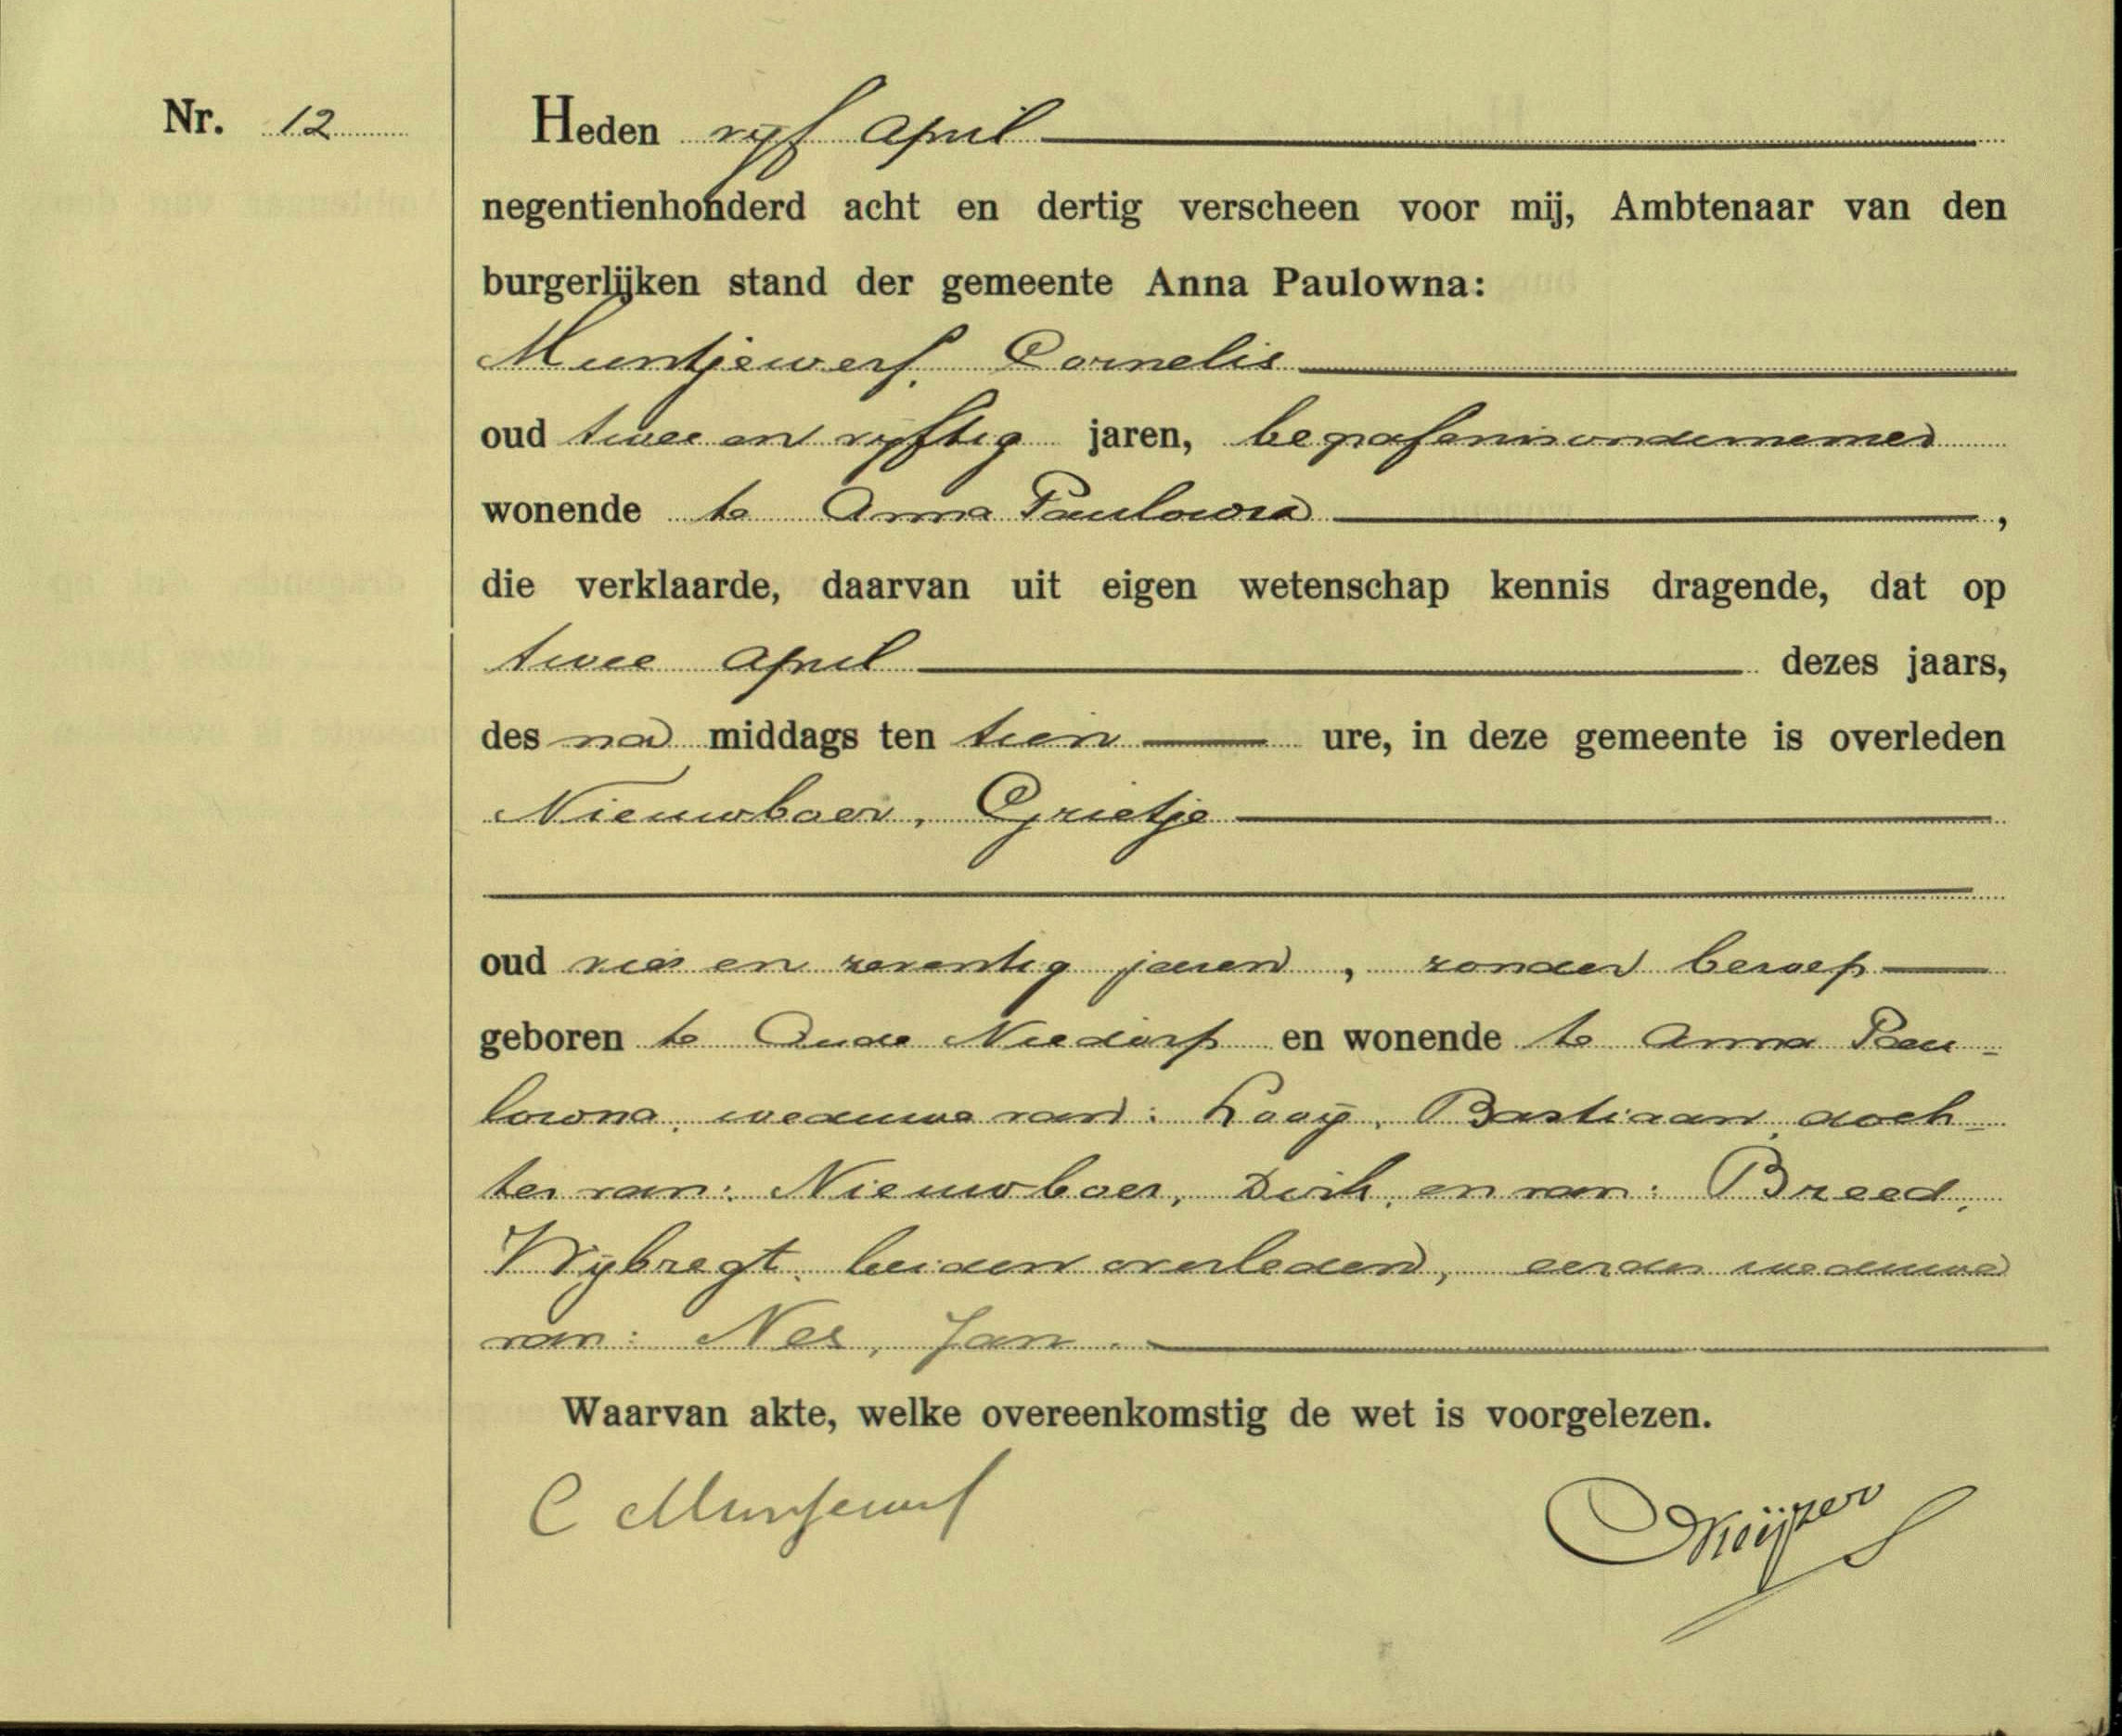 Nr. 12
Heden vijf April
negentienhonderd acht en dertig verscheen voor mij, Ambtenaar van den
burgerlijken stand der gemeente Anna Paulowna:
Muntjewerf, Cornelis
oud twee en vijftig jaren, begrafenisondernemer
wonende te Anna Paulowna ,
die verklaarde, daarvan uit eigen wetenschap kennis dragende, dat op
twee April dezes jaars,
des na middags ten tien ure, in deze gemeente is overleden
Nieuwboer, Grietje
oud vier en zeventig jaren, zonder beroep
geboren te Oude Niedorp en wonende te Anna Pau-
lowna, weduwe van: Kooij, Bastiaan, doch-
ter van: Nieuwboer, Dirk, en van: Breed,
Wijbregt, beiden overleden, eerder weduwe
van: Nes, Jan.
Waarvan akte, welke overeenkomstig de wet is voorgelezen.
C Muntjewerf
Keijzer